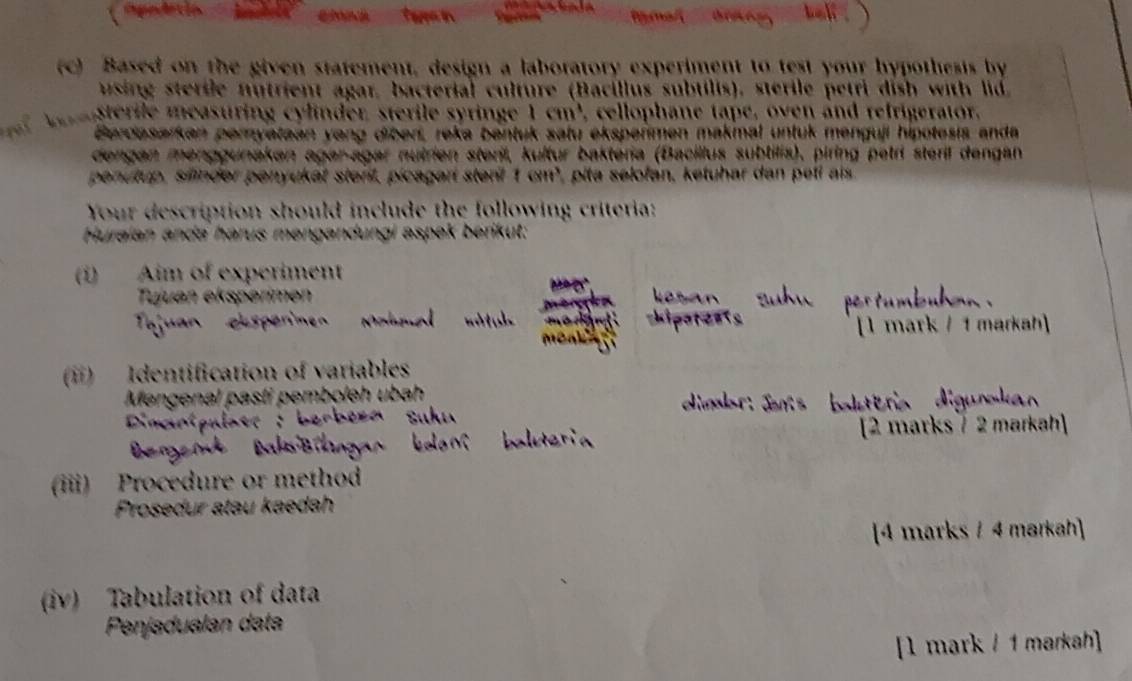 (c) Based on the given statement, design a laboratory experiment to test your hypothesis by
using sterile nutrient agar, bacterial culture (Bacillus subtilis), sterile petri dish with lid,
sterile measuring cylinder, sterile syringe 1 cm³, cellophane tape, oven and refrigerator.
Berdasarkan pernyataan yang diberi, reka bentuk satu eksperimen makmal untuk menguji hipotesis anda
dengan menggunakan agar-agar nutrien steril, kultur bakteria (Bacillus subtilis), piring petri steril dengan
penutup, silinder penyukat steril, picagari steril 1 cm³, pita selofan, ketuhar dan peti ais.
Your description should include the following criteria:
Huraian anda harus mengandungi aspek berikut:
(i) Aim of experiment
Tujuan eksperimen
Tujuan eksperimen makmal untuk mengkaji kesan suhu pertumbuhan.
[1 mark / 1 markah]
(ii) Identification of variables
Mengenal pasti pemboleh ubah
dimalar: Jenis bakteria digunakan
berbeza suhu
[2 marks / 2 markah]
koloni bakteria
(iii) Procedure or method
Prosedur atau kaedah
[4 marks / 4 markah]
(iv) Tabulation of data
Penjadualan data
[1 mark / 1 markah]